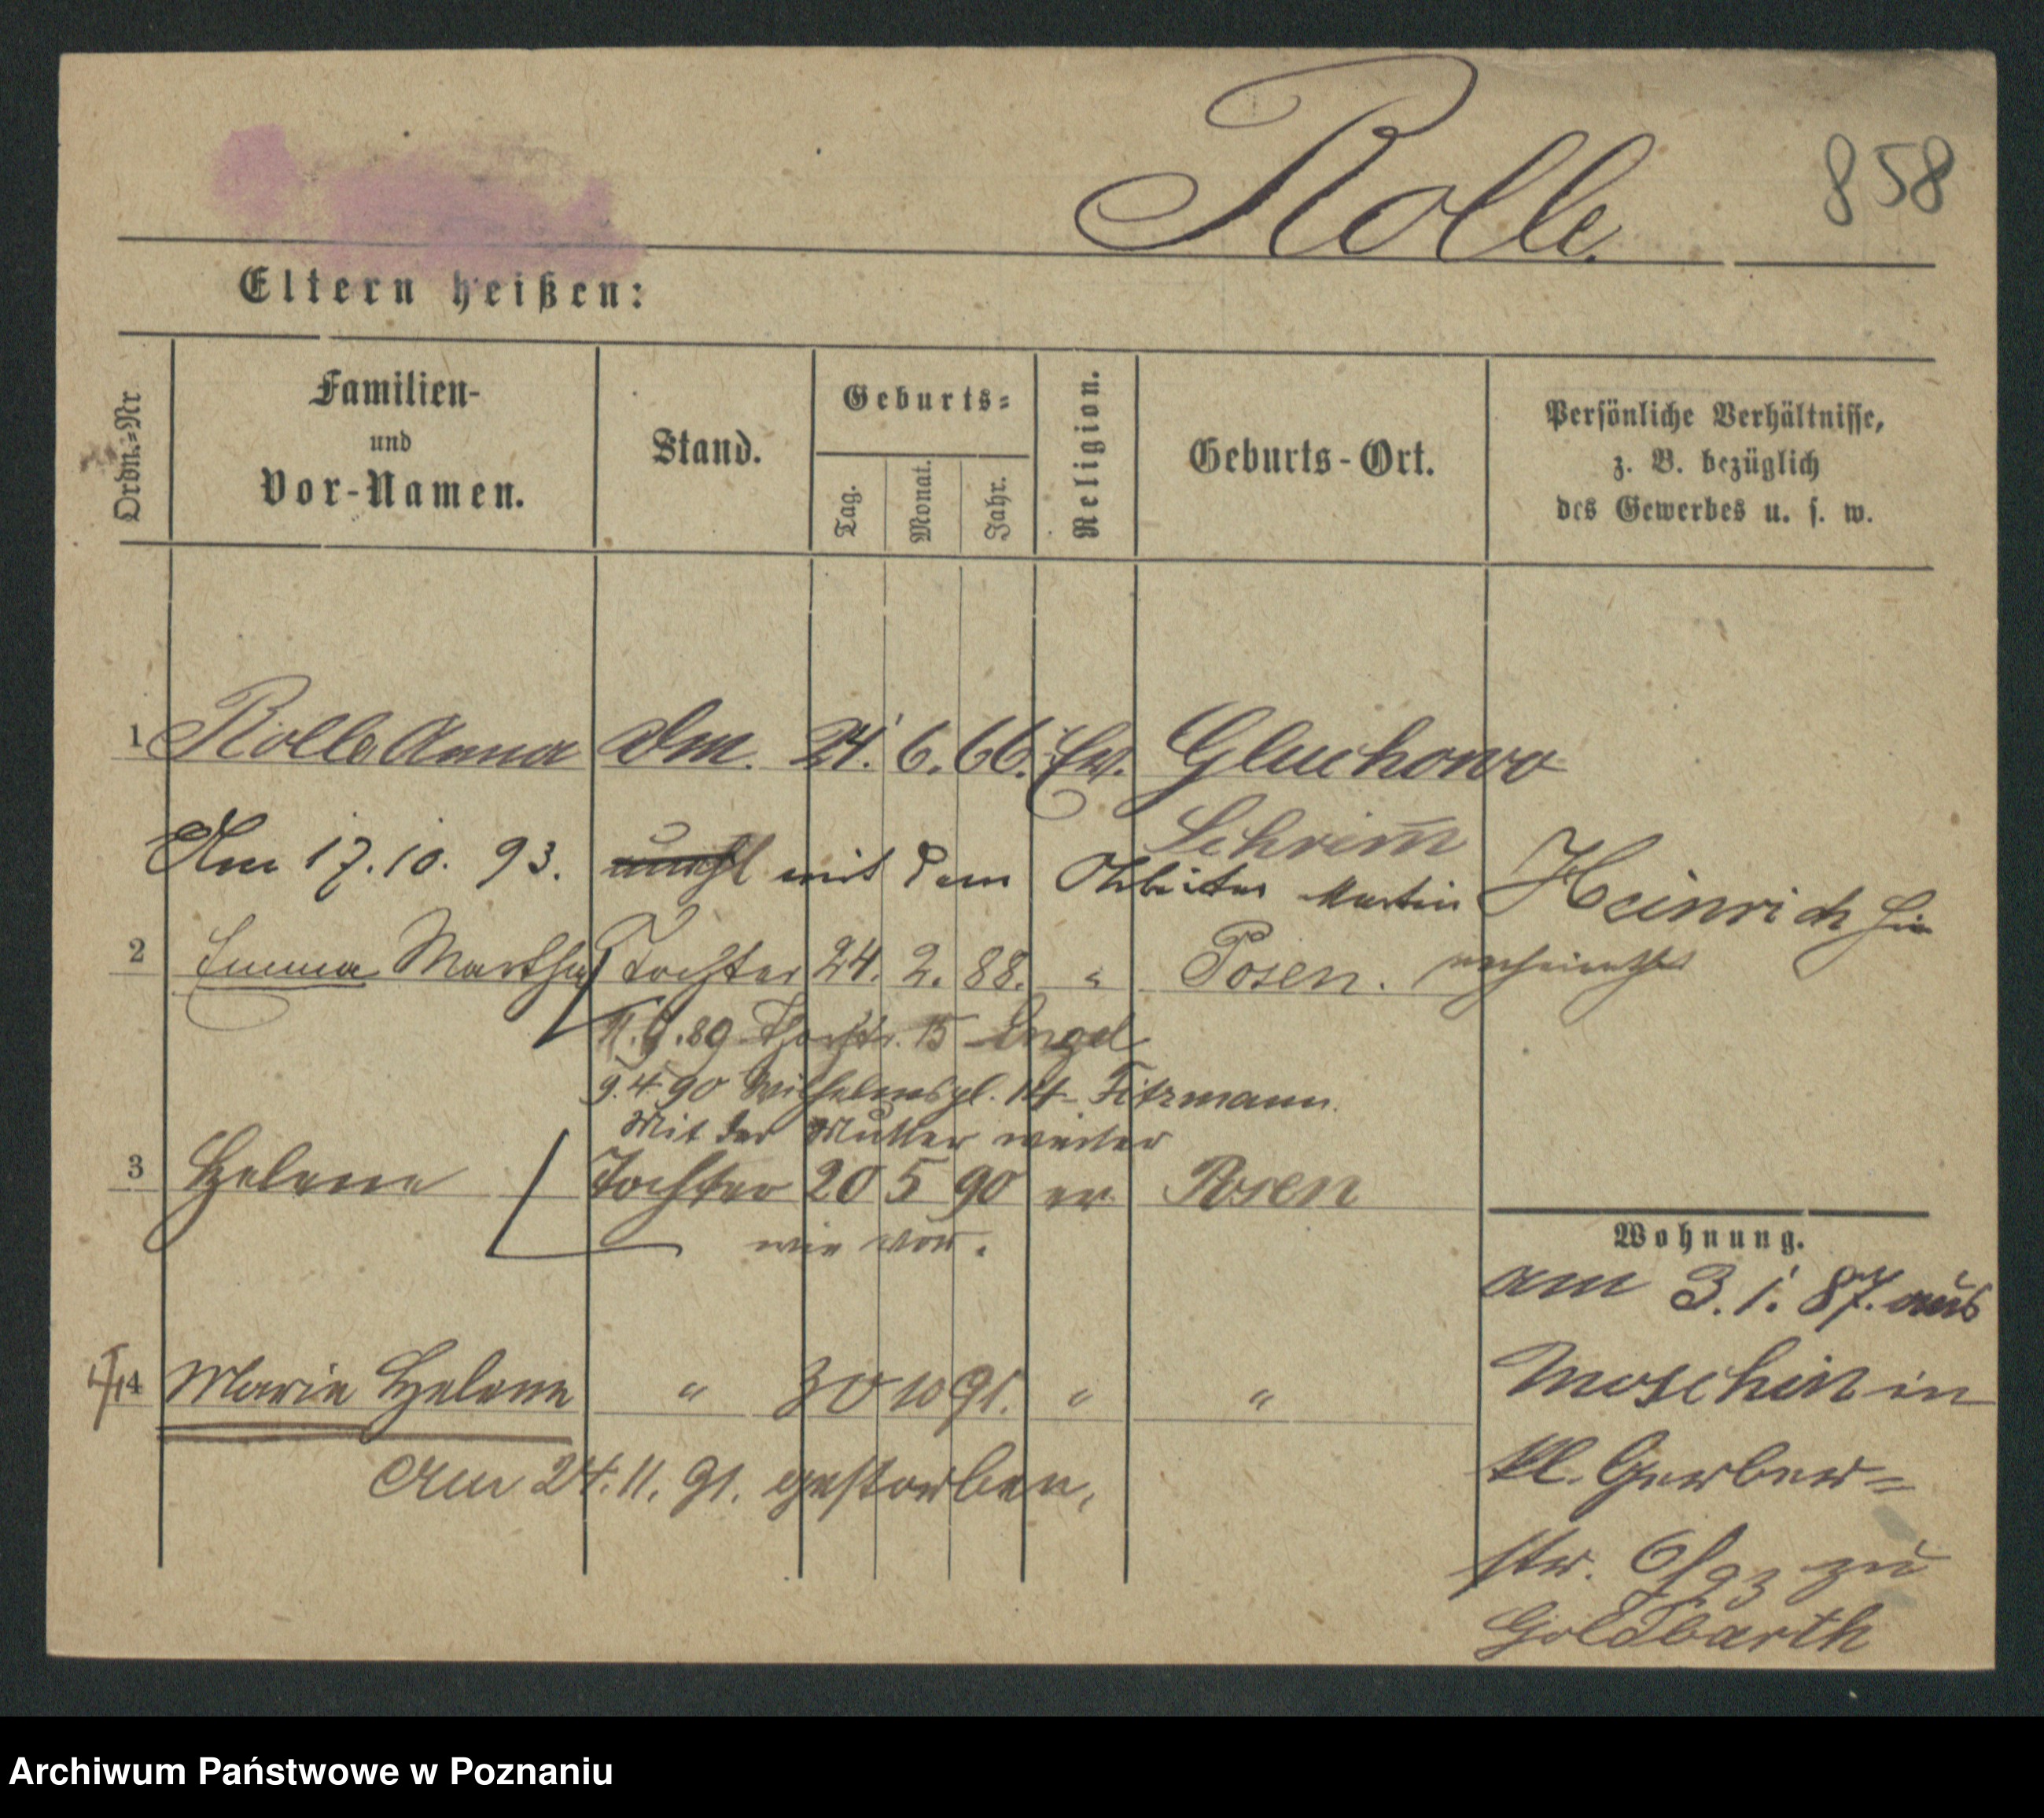 858
Rolle.
Eltern heißen:
Ordn.=Nr
Familien-
und
Vor-Namen.
Stand.
Geburts=
Tag.
Monat.
Jahr.
Religion.
Geburts-Ort.
Persönliche Verhältnisse,
z. B. bezüglich
des Gewerbes u. s. w.
1 Rolle Anna Dm. 24. 6. 66. Ev. Gluchowo
Schrim̄
Am 17.10.93. mit dem Arbeiter Martin Heinrich hier
verheirathet
2 Emma Martha Tochter 24. 2. 88. " Posen.
.89 15 Engel
9.4.90 Wilhelmspl. 14 Fitzmann.
Mit der Mutter weiter
3 Helene Tochter 20 5 90 ev. Posen
wie vor.
4 Marie Helene " 30 10 91. " "
Am 24.11.91. gestorben,
Wohnung.
am 3.1.87. aus
Moschin in
kl. Gerber=
str. 6/93 zu
Goldbarth
Archiwum Państwowe w Poznaniu